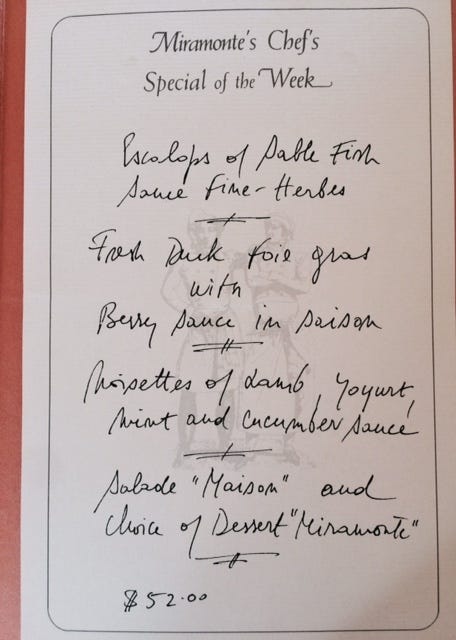 Miramonte's Chef's
Special of the Week
Escalops of Sable Fish
Sauce Fine-Herbes
Fresh Duck foie gras
with
Berry Sauce in Saison
Noisettes of Lamb, Yogurt,
Mint and Cucumber Sauce
Salade "Maison" and
Choice of Dessert "Miramonte"
$52.00